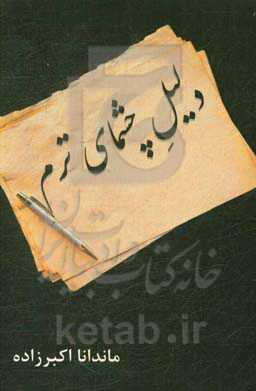 دلیل چشمای ترم
خانه کتاب و ادبیات ایران
ketab.ir
ماندانا اکبرزاده